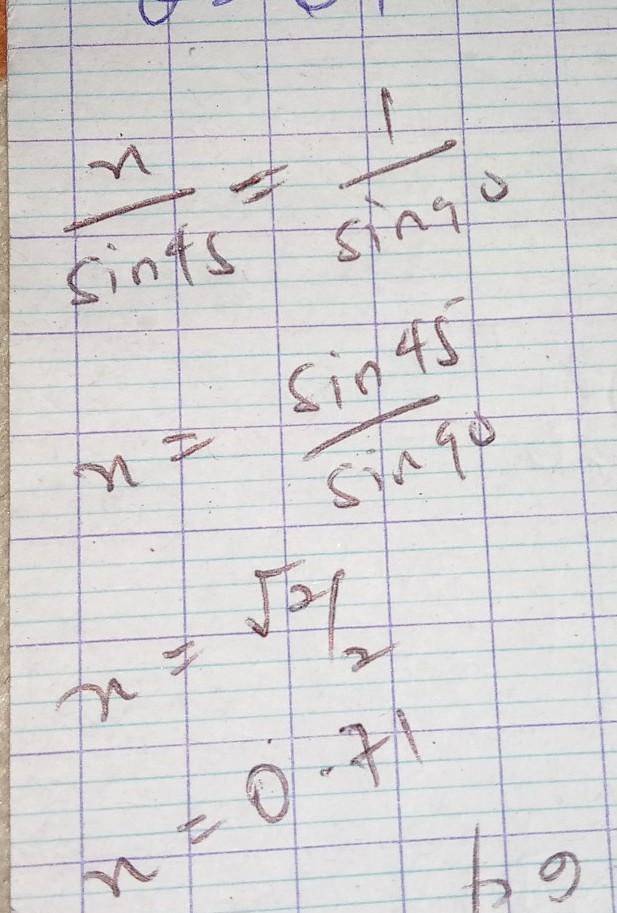 n/sin45 = 1/sin90
n = sin45/sin90
n = √2/2
n = 0.71